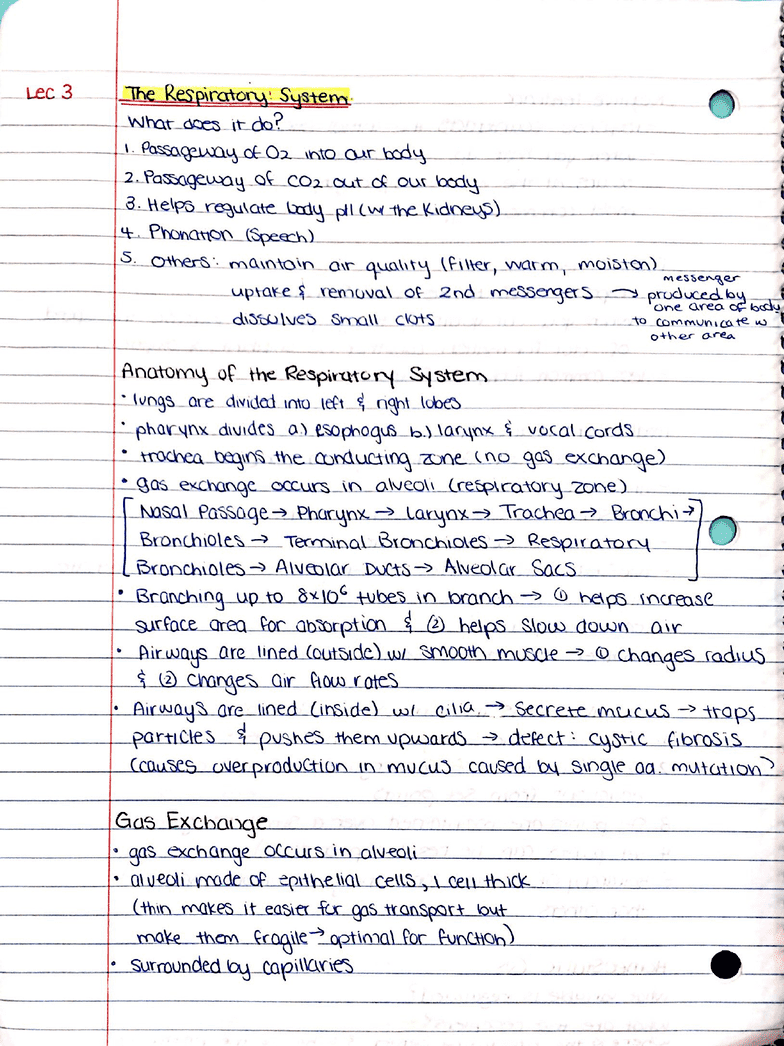 Lec 3
The Respiratory System
What does it do?
1. Passageway of O2 into our body
2. Passageway of CO2 out of our body
3. Helps regulate body pH (w/ the Kidneys)
4. Phonation (Speech)
5. Others: maintain air quality (filter, warm, moisten)
uptake & removal of 2nd messengers → messenger
produced by
one area of body
to communicate w
other area
dissolves small clots
Anatomy of the Respiratory System
• lungs are divided into left & right lobes
• pharynx divides a.) esophogus b.) larynx & vocal cords
• trachea begins the conducting zone (no gas exchange)
• gas exchange occurs in alveoli (respiratory zone)
[Nasal Passage → Pharynx → Larynx → Trachea → Bronchi →
Bronchioles → Terminal Bronchioles → Respiratory
Bronchioles → Alveolar Ducts → Alveolar Sacs]
• Branching up to 8x10⁶ tubes in branch → ① helps increase
surface area for absorption & ② helps slow down air
• Airways are lined (outside) w/ smooth muscle → ① changes radius
& ② changes air flow rates
• Airways are lined (inside) w/ cilia → secrete mucus → traps
particles & pushes them upwards → defect: cystic fibrosis
(causes overproduction in mucus caused by single aa. mutation)
Gas Exchange
• gas exchange occurs in alveoli
• alveoli made of epithelial cells, 1 cell thick
(thin makes it easier for gas transport but
make them fragile → optimal for function)
• surrounded by capillaries